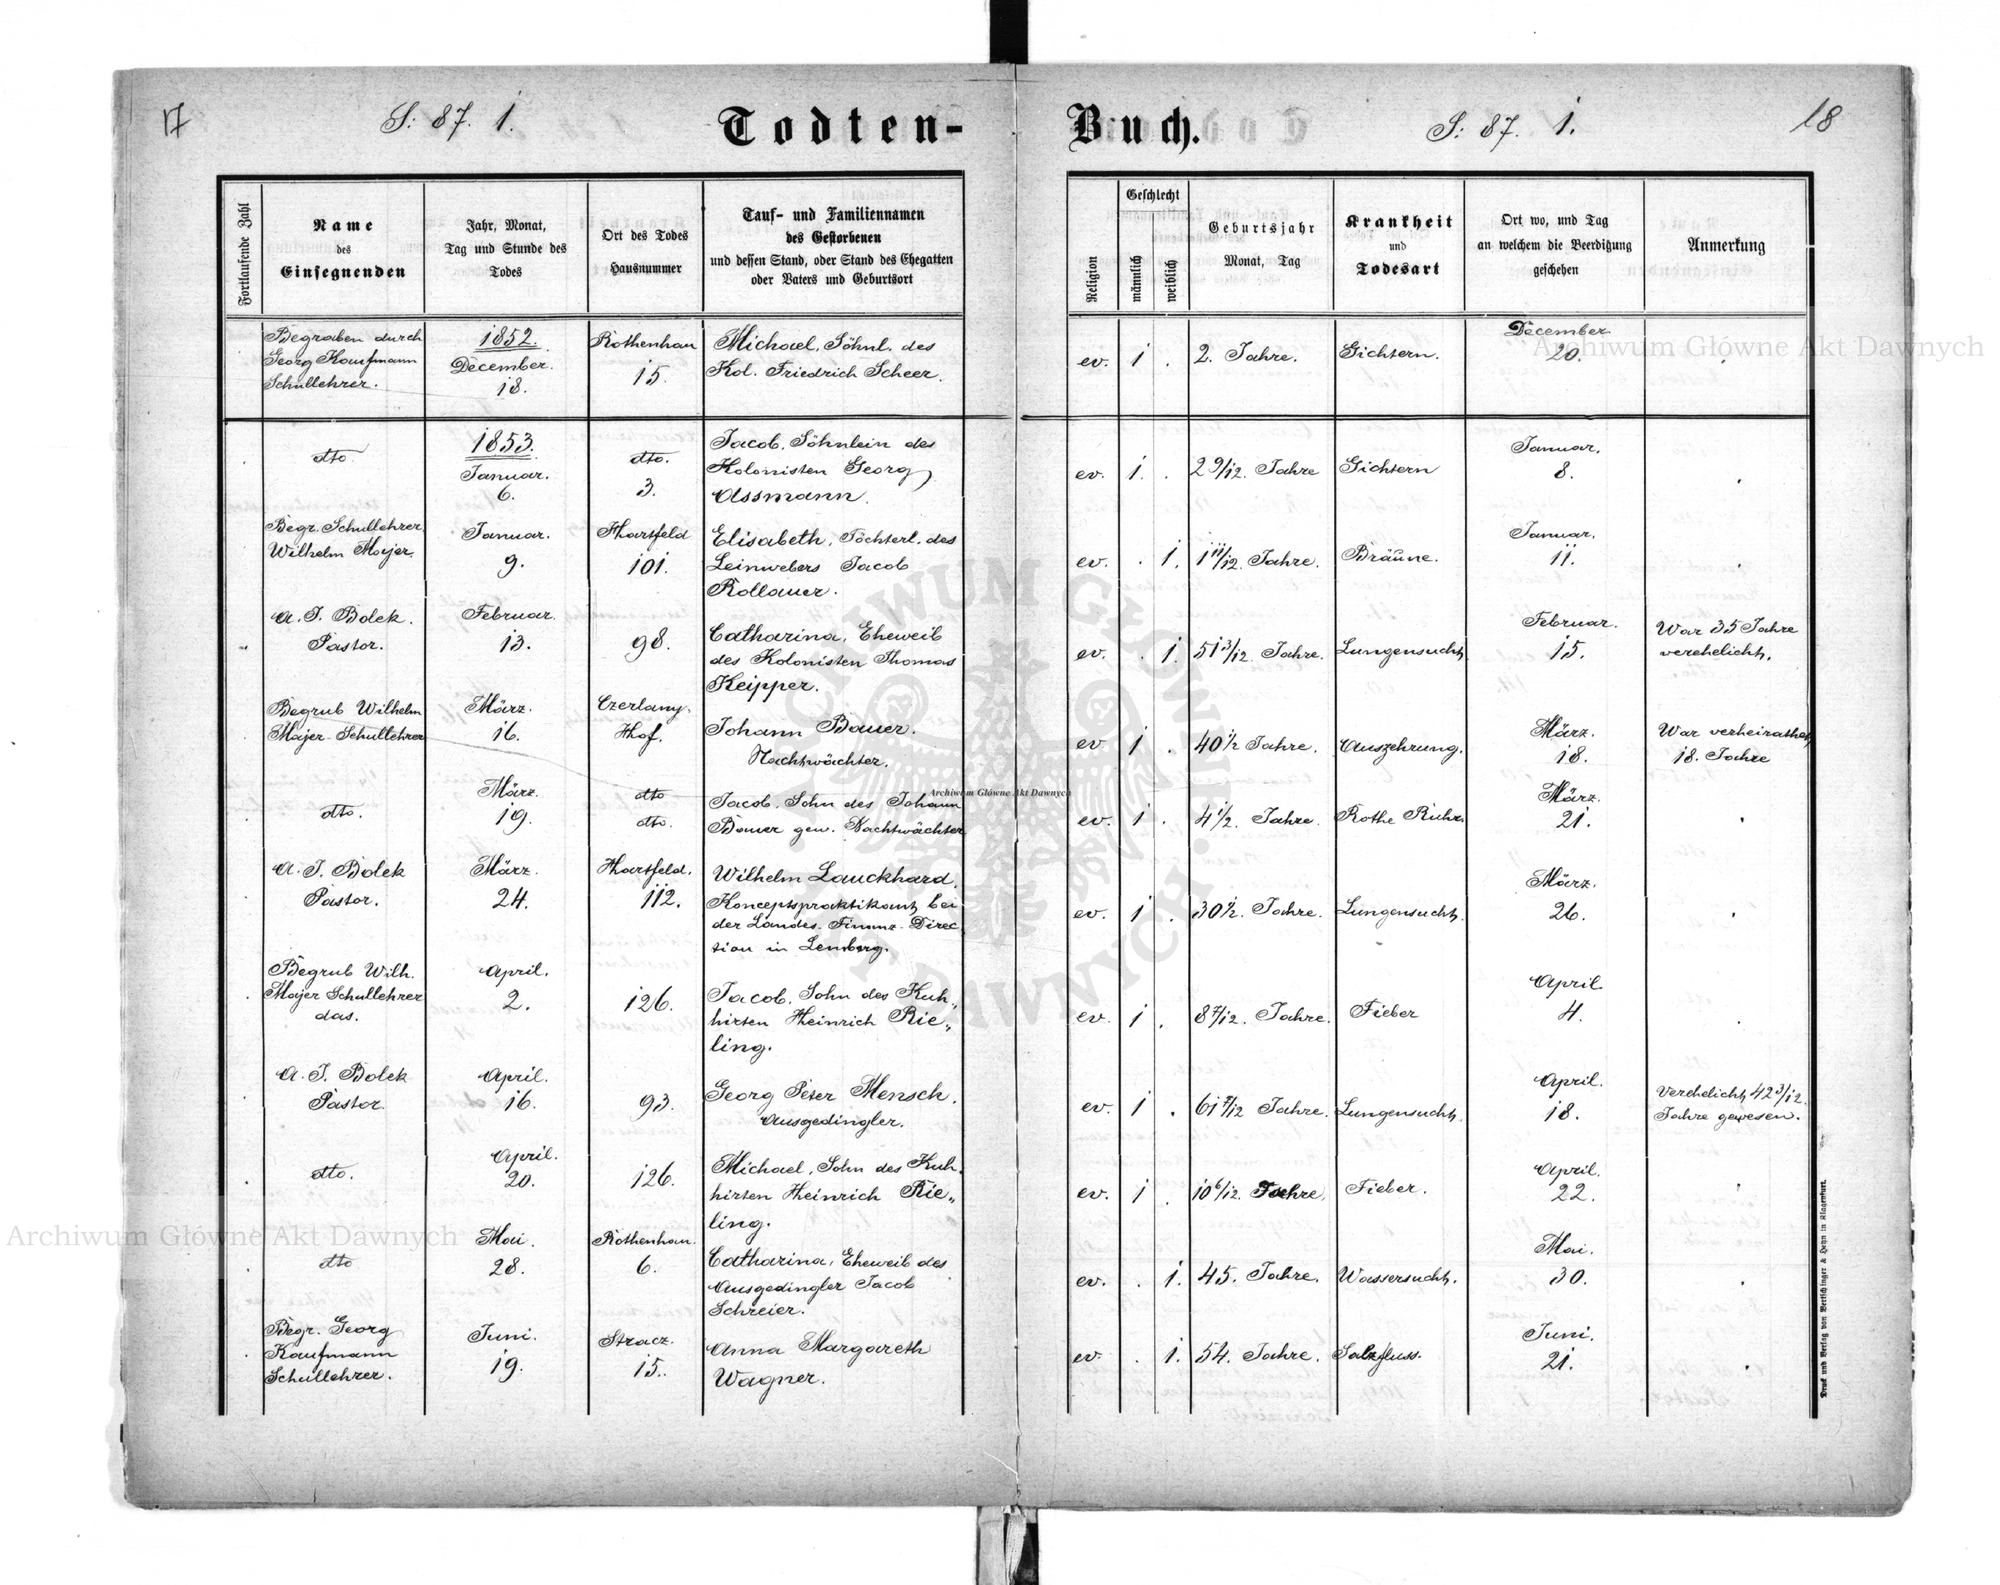 17
S: 87. 1.
Todten-
Buch.
S: 87. 1.
18
Fortlaufende Zahl
Name
des
Einsegnenden
Jahr, Monat,
Tag und Stunde des
Todes
Ort des Todes
Hausnummer
Tauf- und Familiennamen
des Gestorbenen
und dessen Stand, oder Stand des Ehegatten
oder Vaters und Geburtsort
Religion
Geschlecht
männlich
weiblich
Geburtsjahr
Monat, Tag
Krankheit
und
Todesart
Ort wo, und Tag
an welchem die Beerdigung
geschehen
Anmerkung
Begraben durch
Georg Kaufmann
Schullehrer.
1852.
December.
18.
Rothenhan
15.
Michael, Söhnl. des
Kol. Friedrich Scheer.
ev. 1 . 2. Jahre. Gichtern.
December
20.
dto.
1853.
Januar.
6.
dto.
3.
Jacob, Söhnlein des
Kolonisten Georg
Assmann.
ev. 1. . 2 9/12. Jahre Gichtern
Januar.
8.
Begr. Schullehrer
Wilhelm Majer.
Januar.
9.
Hartfeld
101.
Elisabeth, Töchterl. des
Leinwebers Jacob
Rollauer.
ev. . 1. 1 11/12. Jahre. Bräune.
Januar.
11.
A. J. Bolek.
Pastor.
Februar.
13.
98.
Catharina, Eheweib
des Kolonisten Thomas
Keipper.
ev. . 1. 51 3/12. Jahre. Lungensucht.
Februar.
15.
War 35 Jahre
verehelicht.
Begrub Wilhelm
Majer Schullehrer
März.
16.
Czerlany.
Hof.
Johann Bauer.
Nachtwächter.
ev 1 . 40 1/2 Jahre. Auszehrung.
März.
18.
War verheirathet
18. Jahre
dto.
März.
19.
dto
dto.
Jacob, Sohn des Johann
Bauer gew. Nachtwächter
ev. 1 . 4 1/2. Jahre. Rothe Ruhr.
März.
21.
A. J. Bolek
Pastor.
März.
24.
Hartfeld.
112.
Wilhelm Lauckhard.
Konceptspraktikant bei
der Landes. Finanz. Direc
tion in Lemberg.
ev. 1 . 30 1/2. Jahre. Lungensucht.
März.
26.
Begrub Wilh.
Majer Schullehrer
das.
April.
2.
126.
Jacob, Sohn des Kuh„
hirten Heinrich Rie„
ling.
ev. 1 . 8 7/12. Jahre. Fieber
April
4.
A. J. Bolek
Pastor.
April.
16.
93.
Georg Peter Mensch.
Ausgedingler.
ev. 1 . 61 7/12 Jahre. Lungensucht.
April.
18.
Verehelicht 42 3/12.
Jahre gewesen.
dto.
April.
20.
126.
Michael, Sohn des Kuh„
hirten Heinrich Rie„
ling.
ev. 1 . 10 6/12. Jahre. Fieber.
April.
22.
dto
Mai.
28.
Rothenhan.
6.
Catharina, Eheweib des
Ausgedingler Jacob
Schreier.
ev. . 1. 45. Jahre. Wassersucht.
Mai.
30.
Begr. Georg
Kaufmann
Schullehrer.
Juni.
19.
Stracz.
15.
Anna Margareth
Wagner.
ev. . 1. 54. Jahre. Salzfluss.
Juni.
21.
Druck und Verlag von Bertschinger & Heyn in Klagenfurt.
Archiwum Główne Akt Dawnych
Archiwum Główne Akt Dawnych
Archiwum Główne Akt Dawnych
ARCHIWUM GŁÓWNE AKT DAWNYCH